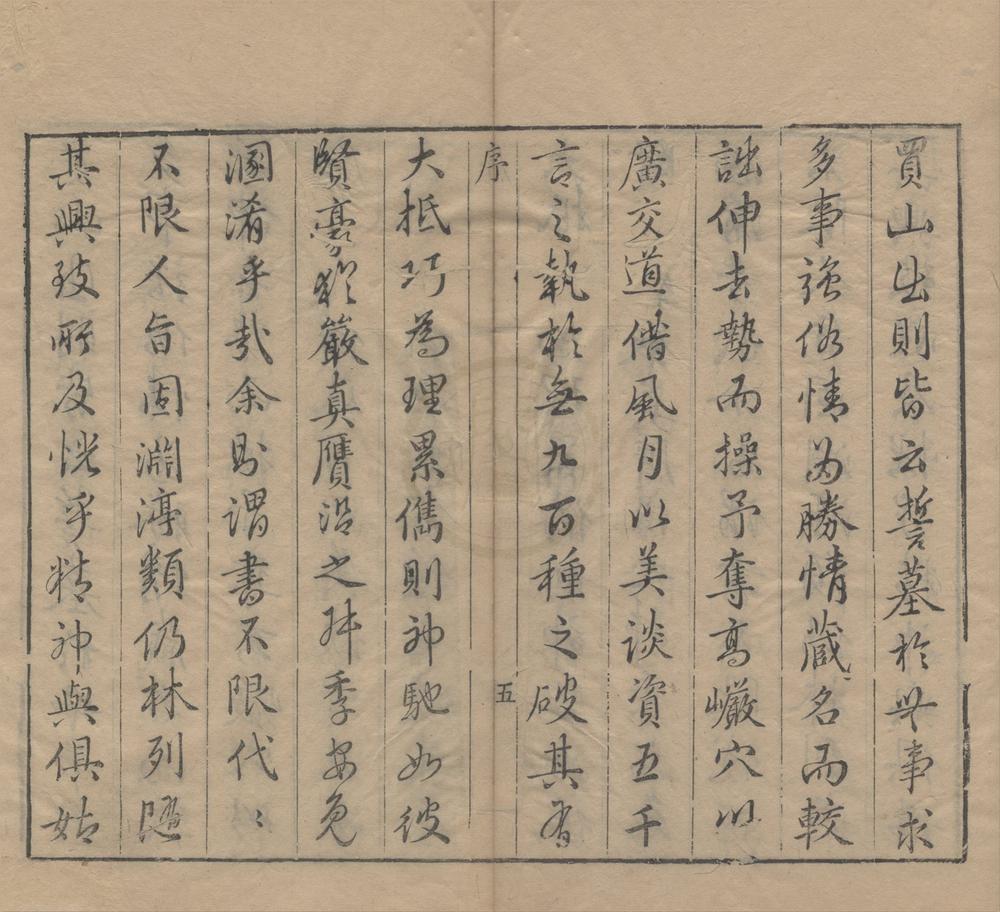 買山出則皆云誓墓於世事求
多事強俗情為勝情藏名而較
詘伸去勢而操予奪高巖穴以
廣交道借風月以美談資五千
言之執於無九百種之破其有
序
五
大抵巧為理累儁則神馳如彼
賢豪猶嚴真贋沿之叔季安免
溷淆乎哉余則謂書不限代〻
不限人旨固淵渟類仍林列隨
其興致所及恍乎精神與俱姑